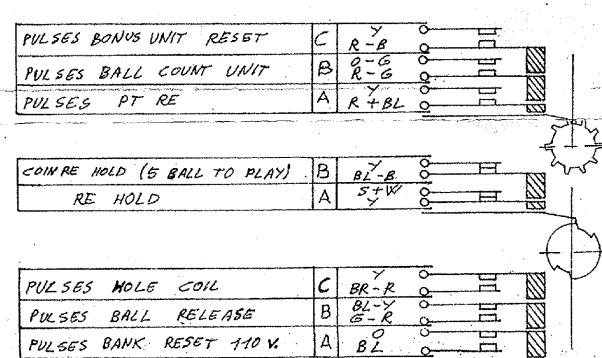 PULSES BONUS UNIT RESET C Y
R-B
PULSES BALL COUNT UNIT B O-G
R-G
PULSES PT RE A Y
R+BL
COIN RE HOLD (5 BALL TO PLAY) B Y
BL-B
RE HOLD A S+W
Y
PULSES HOLE COIL C Y
BR-R
PULSES BALL RELEASE B BL-Y
G-R
PULSES BANK RESET 110 V. A O
BL